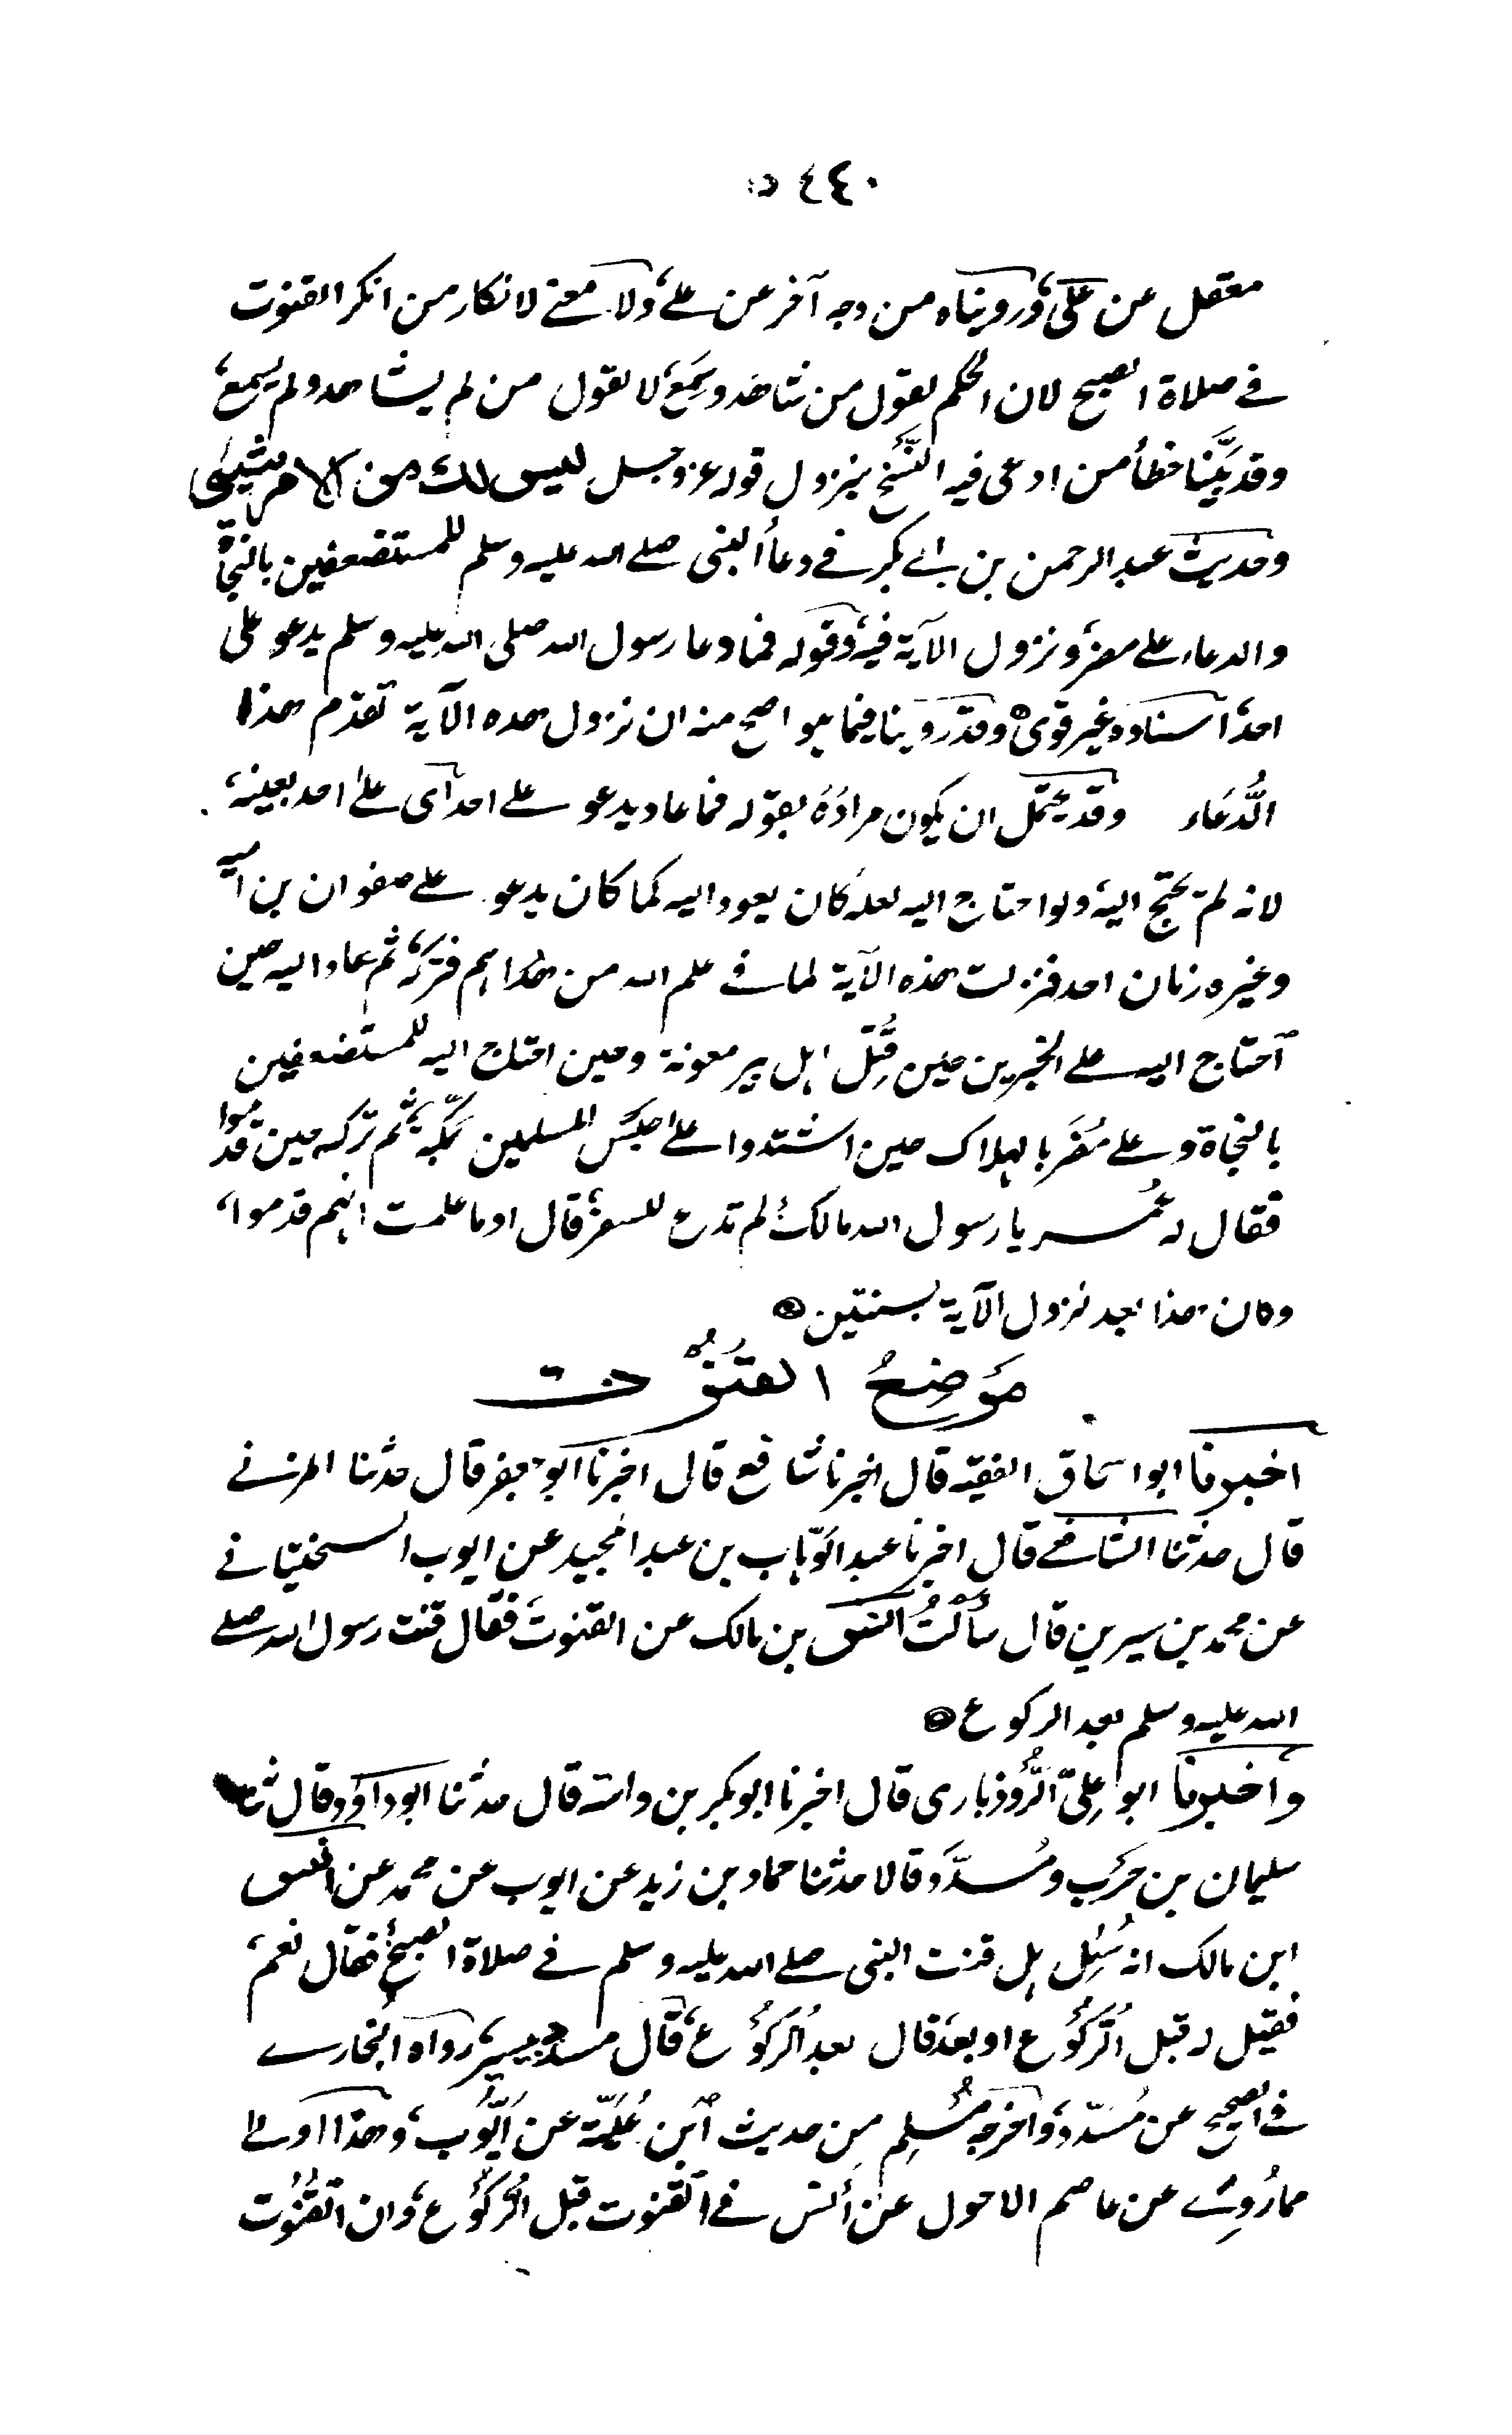 ٤٤٠
معقل عن علی، ورويناه من وجه آخر عن علے، ولا معنے لانكار من انكر القنوت
فے صلاة الصبح لان الحكم لقول من شاهد وسَمِعَ، لا لقول من لم يشاهد ولم يسمع،
وقد بَيَّنا خطأ من ادعى فيه النَّسْخَ بنزول قوله عز وجل ليس لك من الامر شيئ
وحديث عبد الرحمن بن ابے بكر فے دعاء النبی صلے الله عليه وسلم للمستضعفين بالنجاة
والدعاء علے مضر، ونزول الآية فيه، وقوله فما دعا رسول الله صلی الله عليه وسلم يدعو علی
احد، اسناده غير قوی ٥ وقد روينا فيما هو اصح منه ان نزول هذه الآية تقدم هذا
الدُّعَاء وقد يحتمل ان يكون مرادُهُ بقوله فما عاد يدعو علے احد ای علے احد بعينه،
لانه لم يحتج اليه، ولو احتاج اليه لعله كان يعود اليه كما كان يدعو علے صفوان بن امية
وغيره زمان احد فنزلت هذه الآية لما فے علم الله من هداهم فتركه، ثم عاد اليه حين
احتاج اليه علے حين قُتِلَ اهل بير معونة وحين احتاج اليه للمستضعفين
بالنجاة وعلے مُضَرَ بالهلاك حين اشتدوا علے حبس المسلمين بمكة، ثم تركه حين قدموا
فقال له عُمر يا رسول الله مالك لم تدع للنفر، قال اوما علمت انهم قدموا،
وكان هذا بعد نزول الآية بسنتين ٥
مَوضِعُ القُنُوت
اخبرنا ابو اسحاق الفقيه قال اخبرنا شافع قال اخبرنا ابو جعفر قال حدثنا المزنے
قال حدثنا الشافعے قال اخبرنا عبد الوهاب بن عبد المجيد عن ايوب السختيانے
عن محمد بن سيرين قال سألتُ انس بن مالك عن القنوت، فقال قنت رسول الله صلے
الله عليه وسلم بعد الركوع ٥
واخبرنا ابو علِیّ الرُّوذباری قال اخبرنا ابو بكر بن داسة قال حدثنا ابو داؤد قال ثنا
سليمان بن حرب ومُسدّد قالا حدثنا حماد بن زيد عن ايوب عن محمد عن انس
ابن مالك انه سُئِل هل قنت النبی صلے الله عليه وسلم فے صلاة الصبح، فقال نعم،
فقيل له قبل الرُّكُوع او بعد قال بعد الرُّكُوع، قال مسدد بيسير، رواه البخارے
فے الصحيح عن مُسَدّد، واخرجه مُسْلِم مِن حديث ابن عُلَيَّة عن ايُّوب، وهذا اولے
مما رُوِیَ عن عاصم الاحول عن أنس فے القنوت قبل الرُّكُوع، وان القُنُوت